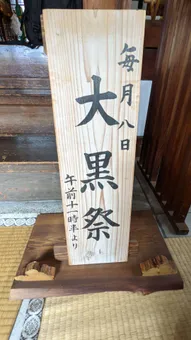 毎月八日
大黒祭
午前十一時半より